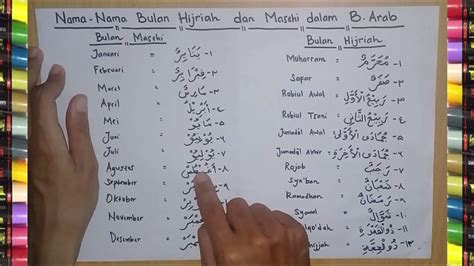 Nama-Nama Bulan Hijriah dan Masehi dalam B. Arab
Bulan Masehi
Januari = ١- يَنَايِرُ
Februari = ٢- فِبْرَايِرُ
Maret = ٣- مَارِسُ
April = ٤- أَبْرِيْلُ
Mei = ٥- مَايُوْ
Juni = ٦- يُوْنِيُوْ
Juli = ٧- يُوْلِيُوْ
Agustus = ٨-
September = ٩-
Oktober =
November =
Desember =
Bulan Hijriah
Muharram = ١- مُحَرَّمٌ
Safar = ٢- صَفَرٌ
Robiul Awal = ٣- رَبِيْعُ الْأَوَّلُ
Robiul Tsani = ٤- رَبِيْعُ الثَّانِي
Jumadal Awal = ٥- جُمَادَى الْأُوْلَى
Jumadal Akhir = ٦- جُمَادَى الْآخِرَةُ
Rojab = ٧- رَجَبٌ
Sya'ban = ٨- شَعْبَانُ
Ramadhan = ٩- رَمَضَانُ
Syawal = ١٠- شَوَّالٌ
qo'dah = ١١- ذُو الْقَعْدَةِ
hijjah = ١٢- ذُو الْحِجَّةِ